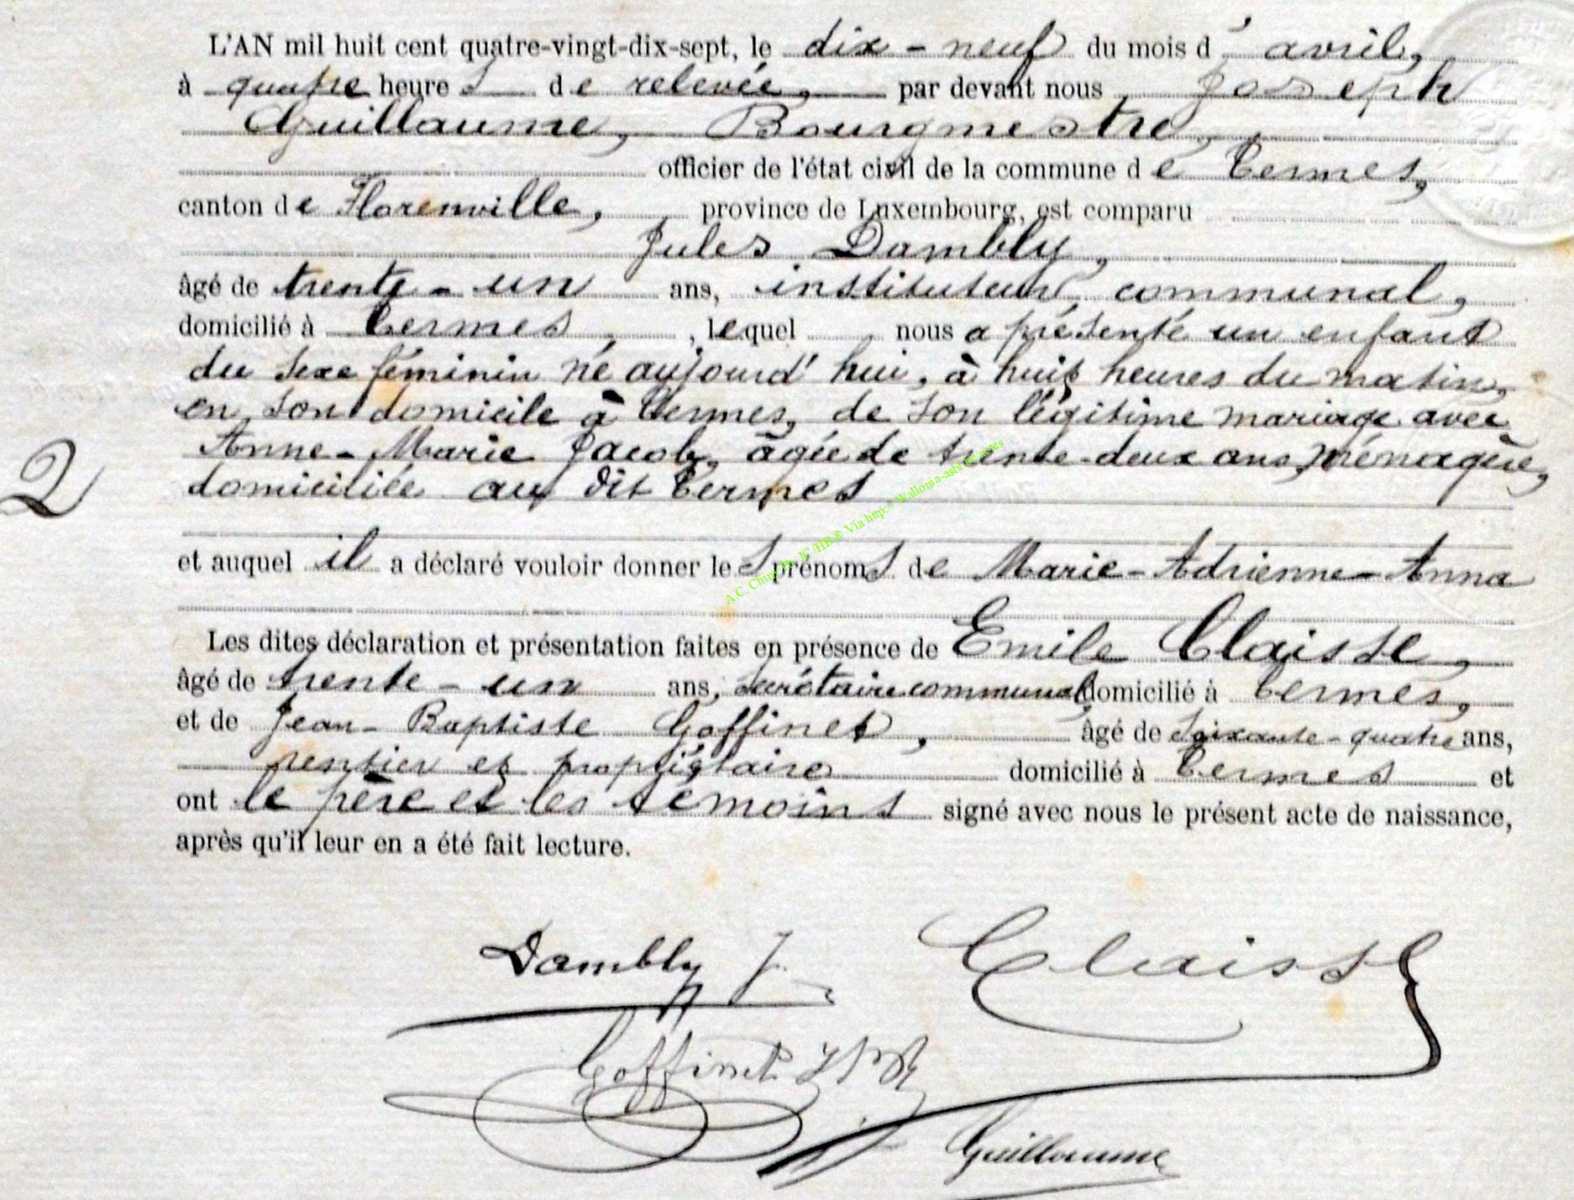 L'AN mil huit cent quatre-vingt-dix-sept, le dix-neuf du mois d'avril,
à quatre heures de relevée, par devant nous Joseph
Guillaume, Bourgmestre,
officier de l'état civil de la commune de Termes,
canton de Florenville, province de Luxembourg, est comparu
Jules Dambly,
âgé de trente-un ans, instituteur communal,
domicilié à Termes, , lequel nous a présenté un enfant
du sexe féminin né aujourd'hui, à huit heures du matin,
en son domicile à Termes, de son légitime mariage avec
Anne-Marie Jacob, âgée de trente-deux ans, ménagère,
2
domiciliée au dit Termes
et auquel il a déclaré vouloir donner les prénoms de Marie-Adrienne-Anna
Les dites déclaration et présentation faites en présence de Emile Claisse,
âgé de trente-un ans, secrétaire communal, domicilié à Termes,
et de Jean-Baptiste Goffinet, âgé de soixante-quatre ans,
rentier et propriétaire domicilié à Termes et
ont le père et les témoins signé avec nous le présent acte de naissance,
après qu'il leur en a été fait lecture.
Dambly J. Claisse
Goffinet
Guillaume